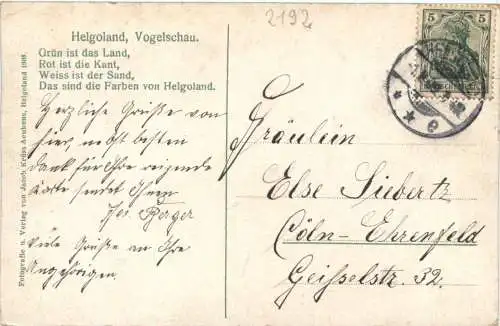 2192
Helgoland, Vogelschau.
Grün ist das Land,
Rot ist die Kant,
Weiss ist der Sand,
Das sind die Farben von Helgoland.
Herzliche Grüße von
hier, mit besten
dank für Ihre reizende
Karte sendet Ihnen
Jos. Berger
Viele Grüße an Ihre
Angehörigen.
Fotografie u. Verlag von Jacob Krüss Aeukens, Helgoland
5
5
Fräulein
Else Siebertz
Cöln-Ehrenfeld
Geisselstr. 32.